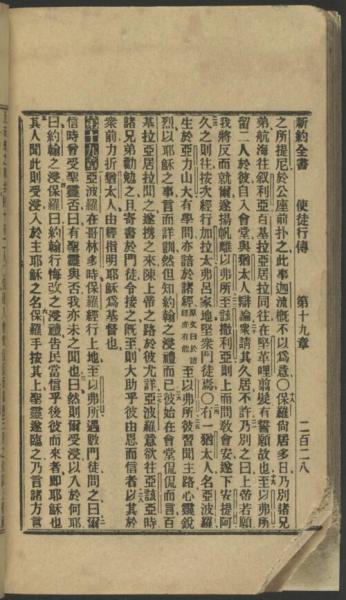 新約全書 使徒行傳 第十九章 二百二八
之所提尼於公座前扑之此事迦流概不以爲意〇保羅尙居多日乃別諸兄
弟航海往叙利亞百基拉亞居拉同往在堅革哩剪髮有誓願故也至以弗所
留二人於彼自入會堂與猶太人辯論衆請其久居不許乃別之曰上帝若願
我將反而就爾遂揚帆離以弗所至該撒利亞則上而問敎會安遂下安提阿
久之則往按次經行加拉太弗呂家地堅衆門徒焉〇有一猶太人名亞波羅
生於亞力山大有學問亦諳於諸經 至以弗所彼習聞主路心靈銳
烈以耶穌之事言而詳訓然但知約翰之浸禮而已彼始在會堂侃侃而言百
基拉亞居拉聞之遂携之來陳上帝之路於彼尤詳亞波羅意欲往亞該亞時
諸兄弟勸勉之且寄書於門徒令接之旣至則大助乎彼由恩而信者以其於
衆前力折猶太人由經指明耶穌爲基督也
第十九章亞波羅在哥林多時保羅經行上地至以弗所遇數門徒問之曰爾
信時曾受聖靈否曰有聖靈與否我亦未之聞也曰然則爾受浸以入於何耶
曰約翰之浸保羅曰約翰行悔改之浸禮告民當信乎後彼而來者卽耶穌也
其人聞此則受浸入於主耶穌之名保羅手按其上聖靈遂臨之乃言諸方言